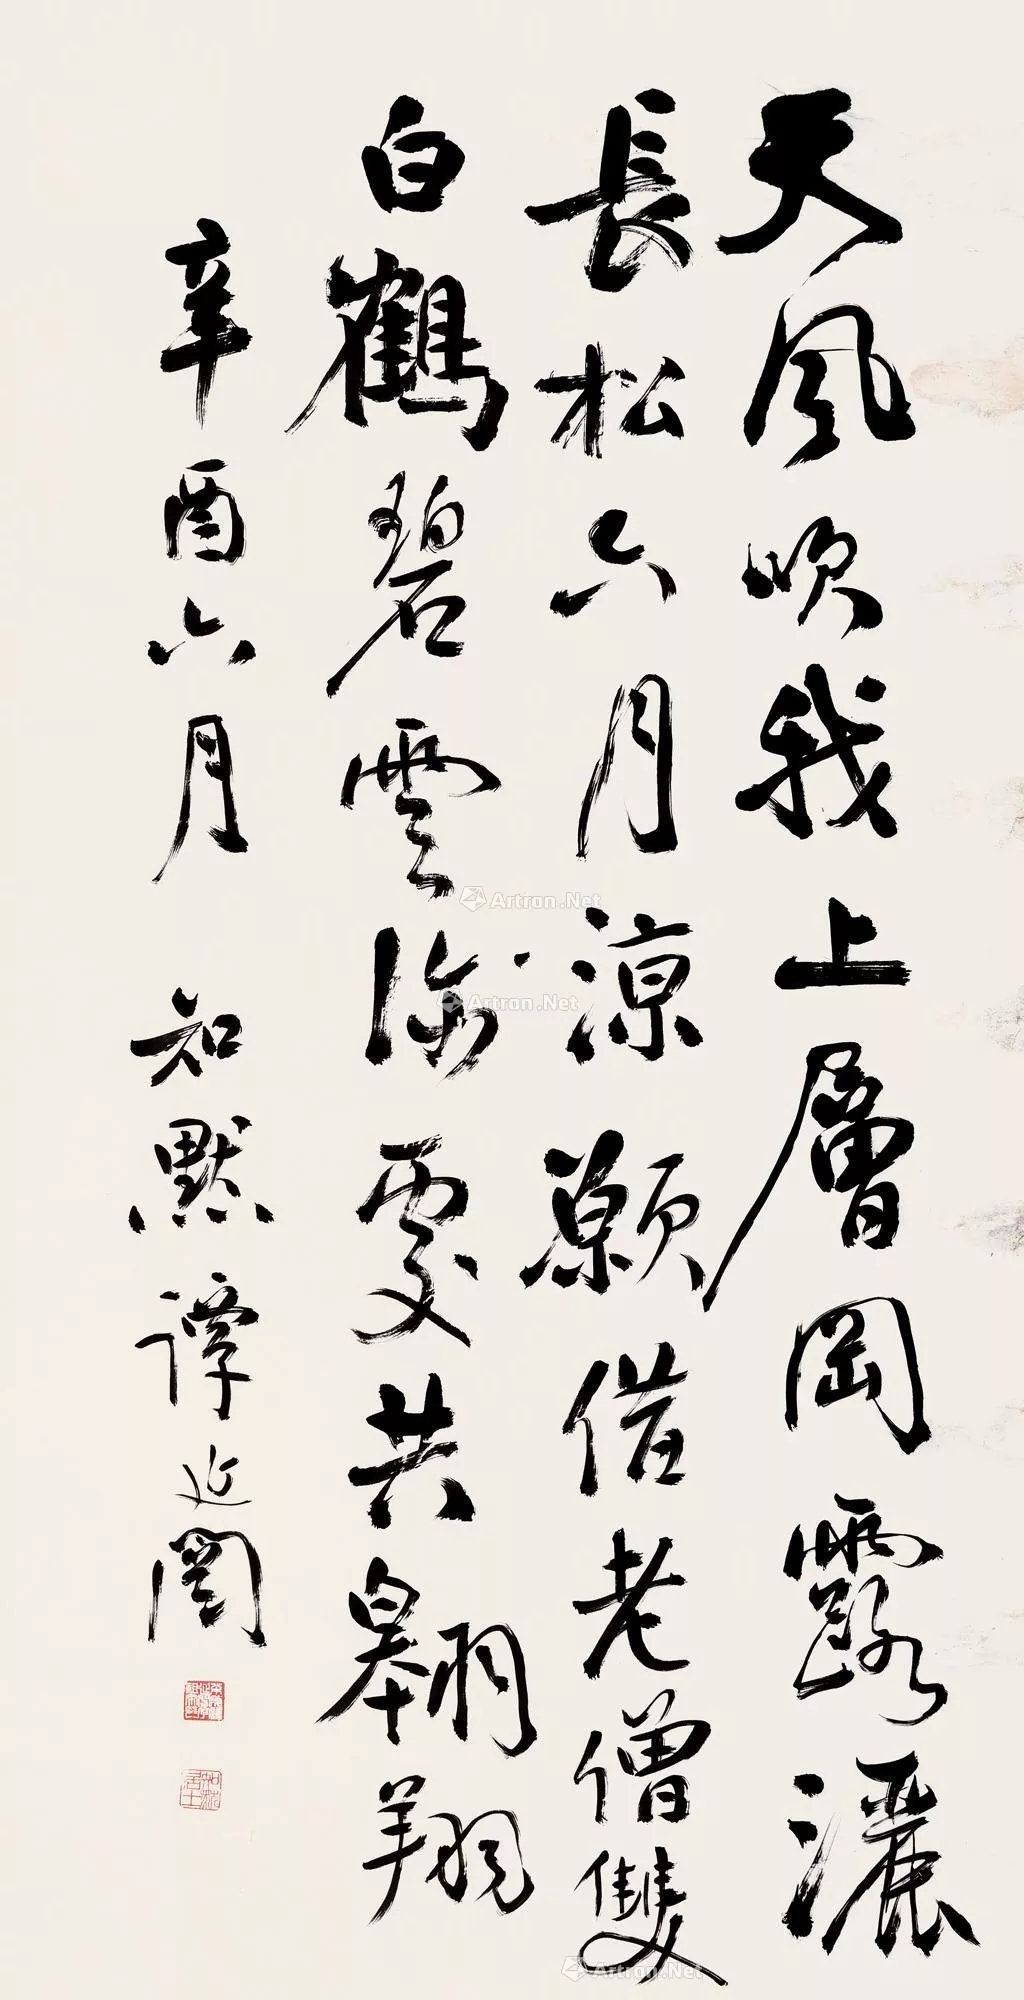 天風吹我上層岡露灑
長松六月涼願借老僧雙
白鶴碧雲深處共翱翔
辛酉六月 知默譚延闓
Artron.Net
Artron.Net
Artron.Net